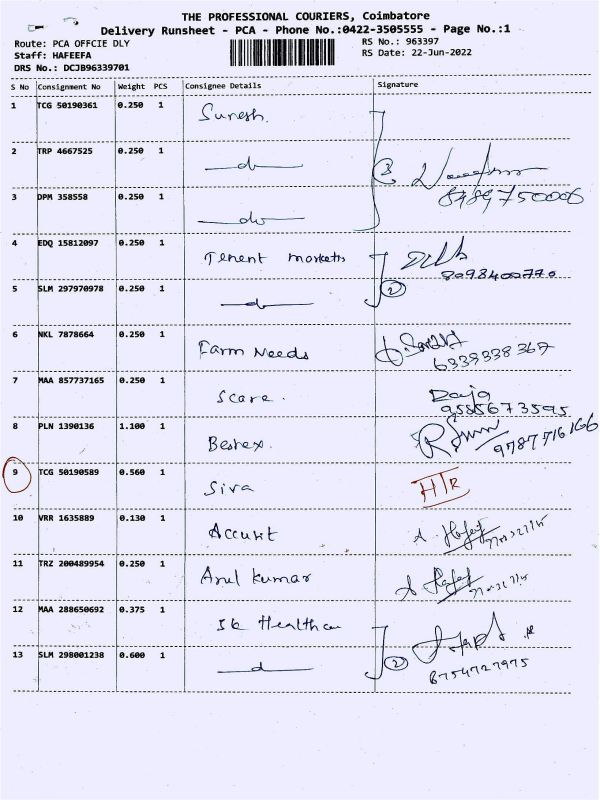 THE PROFESSIONAL COURIERS, Coimbatore
Delivery Runsheet - PCA - Phone No.:0422-3505555 - Page No.:1
Route: PCA OFFCIE DLY RS No.: 963397
Staff: HAFEEFA RS Date: 22-Jun-2022
DRS No.: DCJB96339701
S No Consignment No Weight PCS Consignee Details Signature
1 TCG 50190361 0.250 1 Suresh.
2 TRP 4667525 0.250 1 do 3
8489750006
3 DPM 358558 0.250 1 do
4 EDQ 15812097 0.250 1 Tenent markets
8098400770
5 SLM 297970978 0.250 1 do 2
6 NKL 7878664 0.250 1 Farm Needs
6339338367
7 MAA 857737165 0.250 1 Scare.
9585673595
8 PLN 1390136 1.100 1 Bestex.
9787716166
9 TCG 50190589 0.560 1 Siva
10 VRR 1635889 0.130 1 Accurit
11 TRZ 200489954 0.250 1 Arul Kumar
12 MAA 288650692 0.375 1 Sk Healthcar
13 SLM 298001238 0.600 1 d 2
8754727975